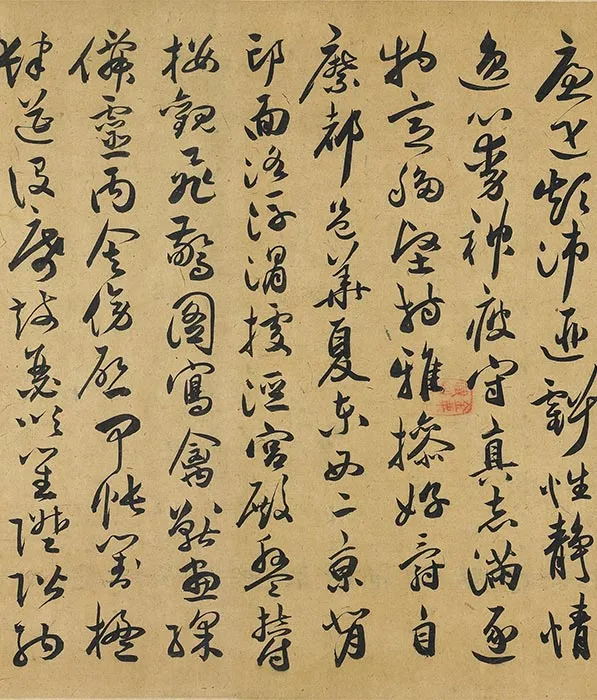 廉退顛沛匪虧性靜情
逸心動神疲守真志滿逐
物意移堅持雅操好爵自
縻都邑華夏東西二京背
邙面洛浮渭據涇宮殿盤鬱
樓觀飛驚圖寫禽獸畫綵
僊靈丙舍傍啟甲帳對楹
肆筵設席鼓瑟吹笙陞階納